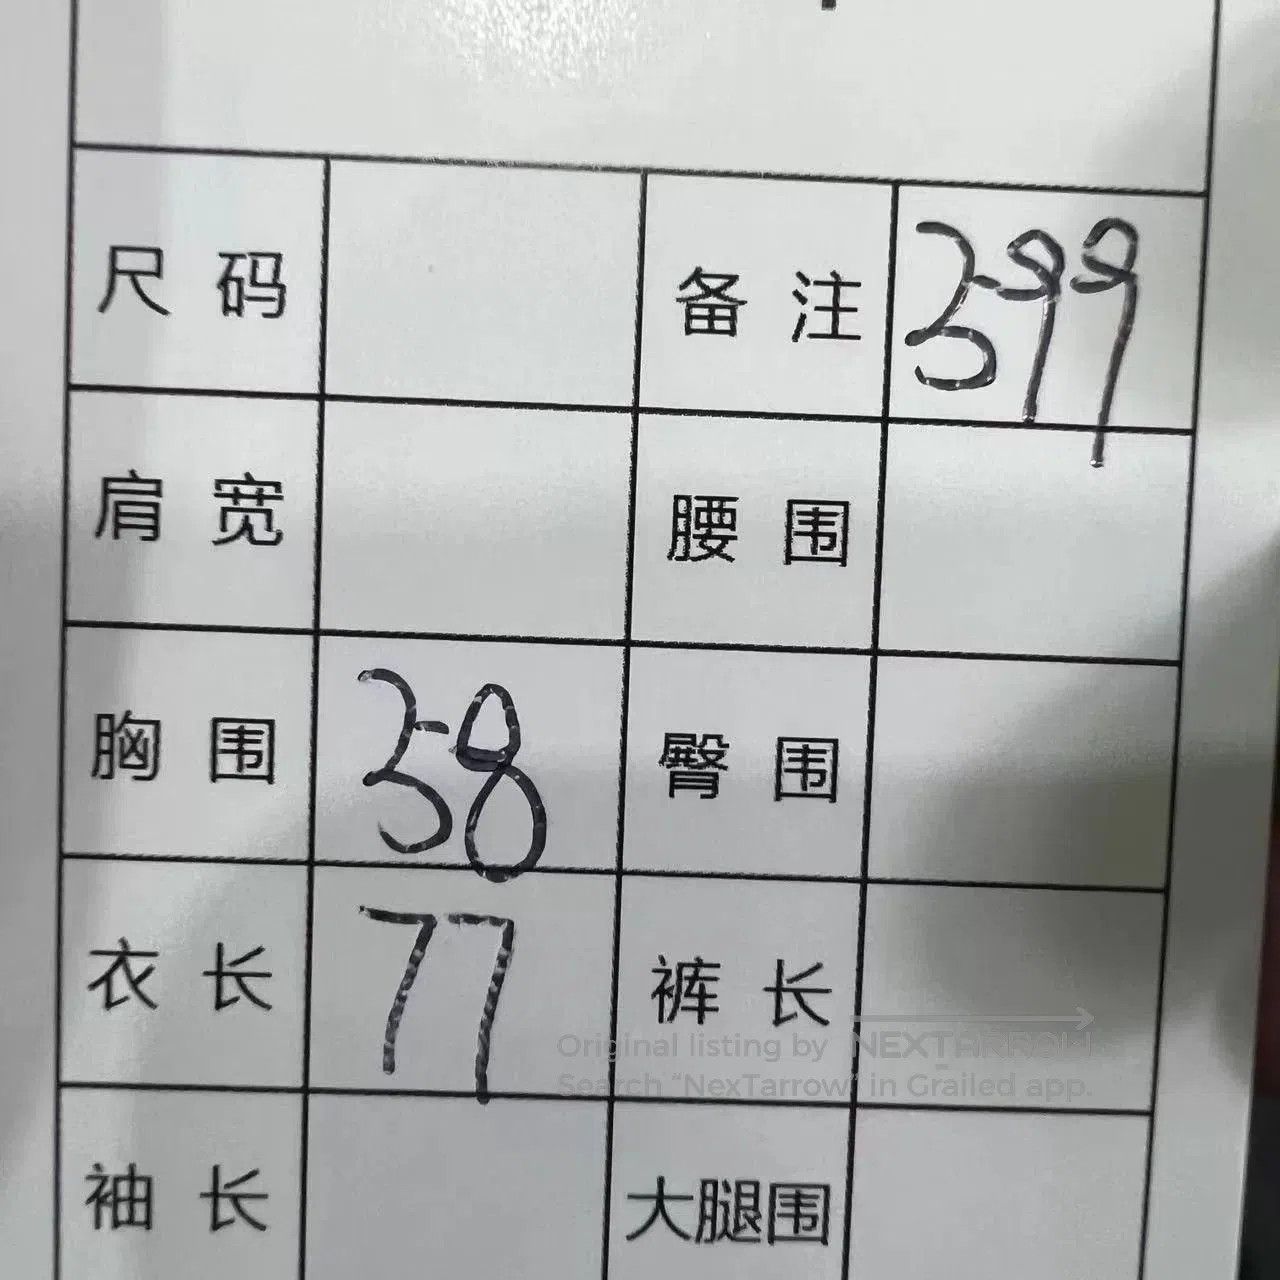 尺 码 备 注 399
肩 宽 腰 围
胸 围 38 臀 围
衣 长 77 裤 长
Original listing by NEXTARROW
Search "NexTarrow" in Grailed app.
袖 长 大腿围